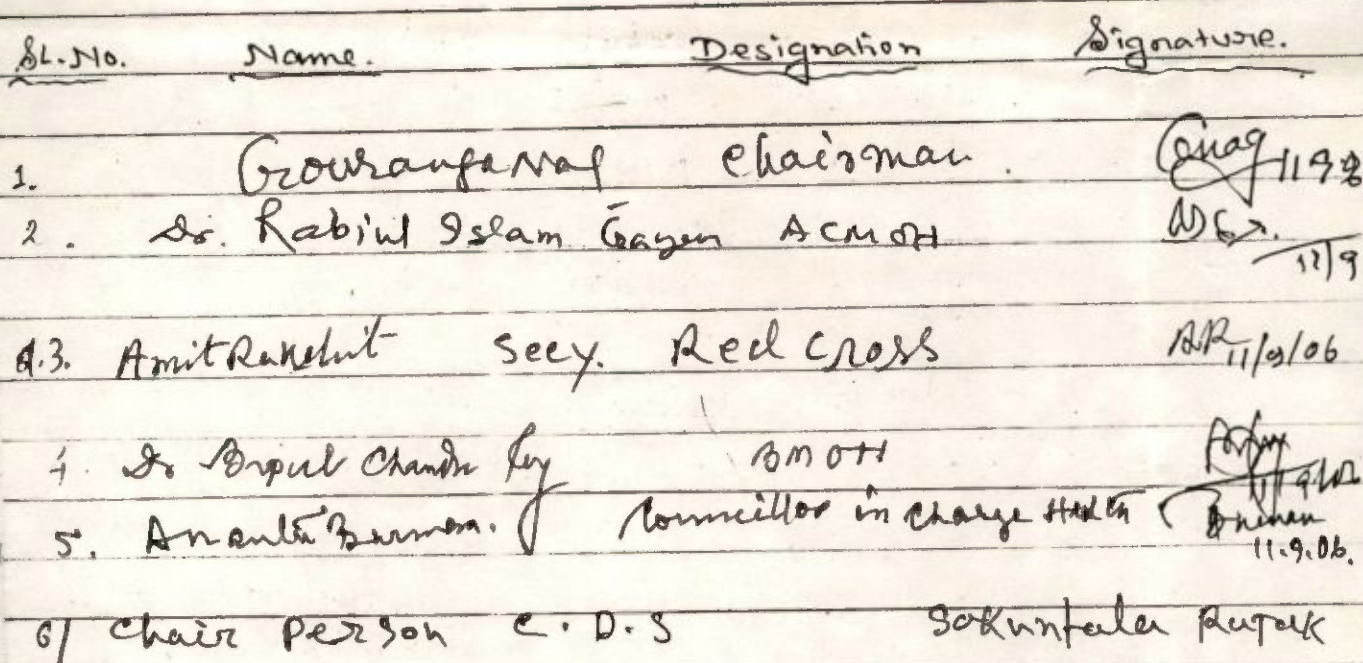 SL.No. Name. Designation Signature.
1. Gouranga Nag Chairman. GNag 11.9.06
2. Dr. Rabiul Islam Gayen ACMOH 11/9
3. Amit Rakshit Secy. Red Cross AR 11/9/06
4. Dr Bipul Chandra Roy BMOH
5. Ananta Burman. Councillor in charge Health Burman
11.9.06.
6/ Chair person C.D.S Sakuntala Rajak